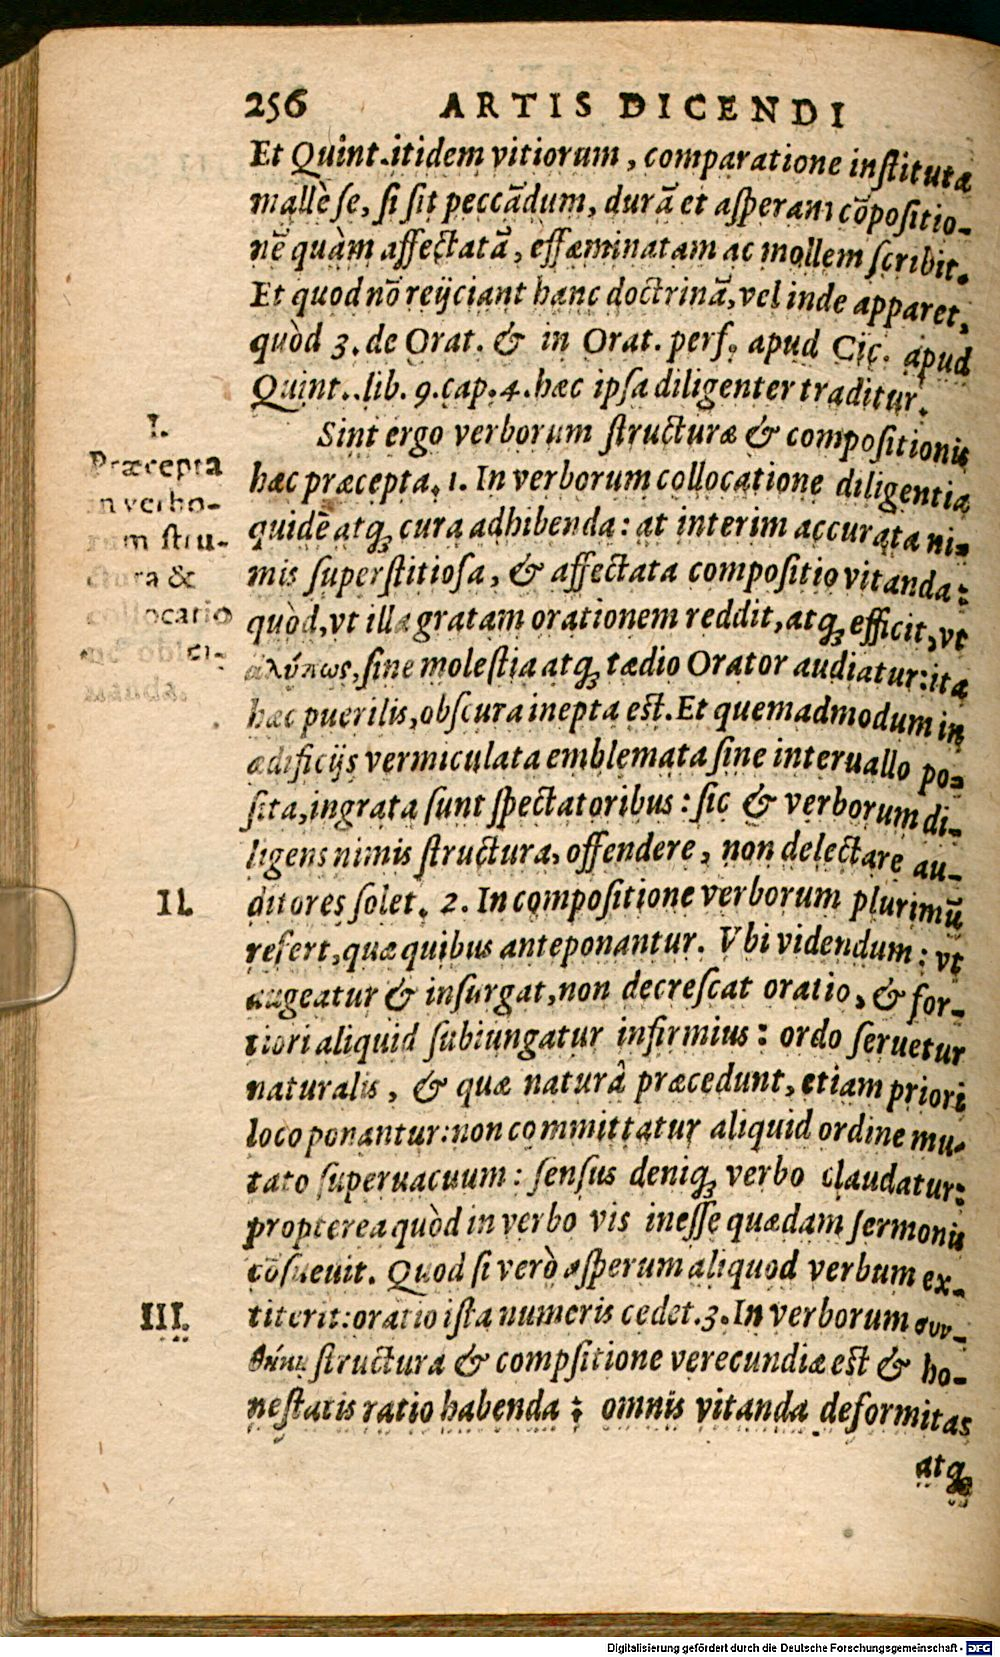 256 ARTIS DICENDI
Et Quint. itidem vitiorum, comparatione instituta
mallè se, si sit peccādum, durā et asperam cōpositio-
nē quàm affectatā, effæminatam ac mollem scribit.
Et quod nō reijciant hanc doctrinā, vel inde apparet,
quòd 3. de Orat. & in Orat. perf. apud Cic. apud
Quint.. lib. 9. cap. 4. hæc ipsa diligenter traditur.
Sint ergo verborum structuræ & compositionis
hæc præcepta. 1. In verborum collocatione diligentia
quidē atq; cura adhibenda: at interim accurata ni-
mis superstitiosa, & affectata compositio vitanda:
quòd, vt illa gratam orationem reddit, atq; efficit, vt
ἀλύπως, sine molestia atq; tædio Orator audiatur: ita
hæc puerilis, obscura inepta est. Et quemadmodum in
ædificijs vermiculata emblemata sine interuallo po-
sita, ingrata sunt spectatoribus: sic & verborum di-
ligens nimis structura, offendere, non delectare au-
ditores solet. 2. In compositione verborum plurimū
refert, quæ quibus anteponantur. Vbi videndum: vt
augeatur & insurgat, non decrescat oratio, & for-
tiori aliquid subiungatur infirmius: ordo seruetur
naturalis, & quæ naturâ præcedunt, etiam priori
loco ponantur: non committatur aliquid ordine mu-
tato superuacuum: sensus deniq; verbo claudatur:
propterea quòd in verbo vis inesse quædam sermonis
cōsueuit. Quod si verò asperum aliquod verbum ex-
titerit: oratio ista numeris cedet. 3. In verborum συν-
θήκη structura & compsitione verecundiæ est & ho-
nestatis ratio habenda: omnis vitanda deformitas
atq;
I.
Præcepta
in verbo-
rum stru-
ctura &
collocatio
II.
III.
Digitalisierung gefördert durch die Deutsche Forschungsgemeinschaft - DFG